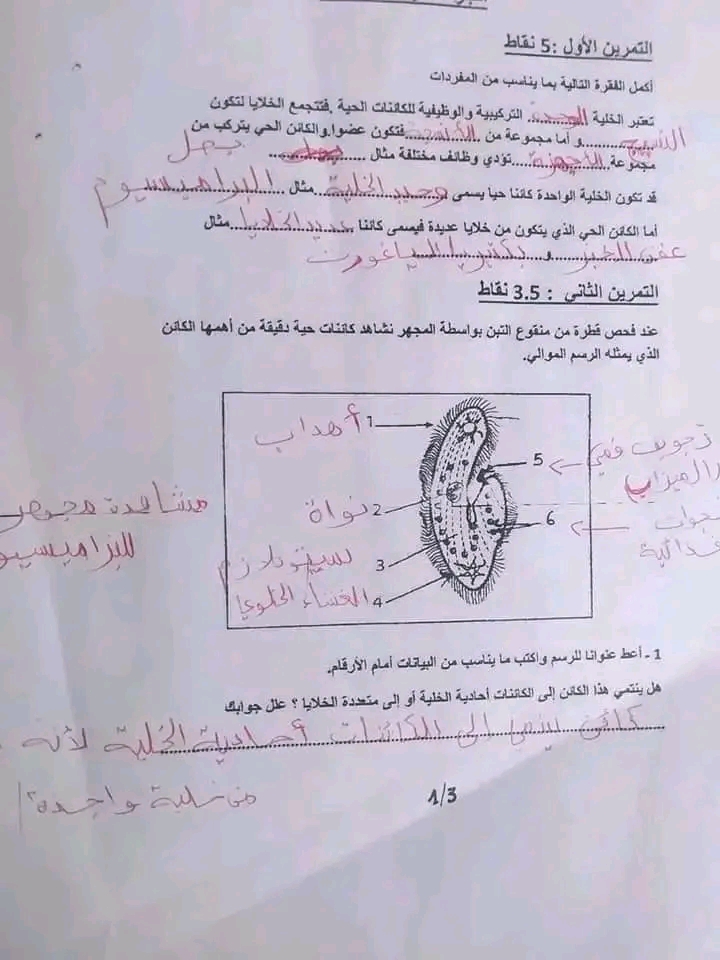 التمرين الأول :5 نقاط
أكمل الفقرة التالية بما يناسب من المفردات
تعتبر الخلية الوحدة التركيبية والوظيفية للكائنات الحية .فتتجمع الخلايا لتكون
النسيج و أما مجموعة من الأنسجة فتكون عضوا.والكائن الحي يتركب من
مجموعة الأجهزة تؤدي وظائف مختلفة مثال بصل
قد تكون الخلية الواحدة كائنا حيا يسمى وحيد الخلية مثال البراميسيوم
أما الكائن الحي الذي يتكون من خلايا عديدة فيسمى كائنا عديد الخلايا مثال
عفن الخبز و بكتيريا الياغورت
التمرين الثاني : 3.5 نقاط
عند فحص قطرة من منقوع التبن بواسطة المجهر نشاهد كائنات حية دقيقة من أهمها الكائن
الذي يمثله الرسم الموالي.
أهداب 1
5 تجويف فمي
(الميزاب)
مشاهدة مجهر
للبراميسيو
نواة 2
6
سيتوبلازم 3
الغشاء الخلوي 4
1 - أعط عنوانا للرسم واكتب ما يناسب من البيانات أمام الأرقام.
هل ينتمي هذا الكائن إلى الكائنات أحادية الخلية أو إلى متعددة الخلايا ؟ علل جوابك
كائن ينتمي الى الكائنات أحادية الخلية لأنه
من خلية واحدة
1/3